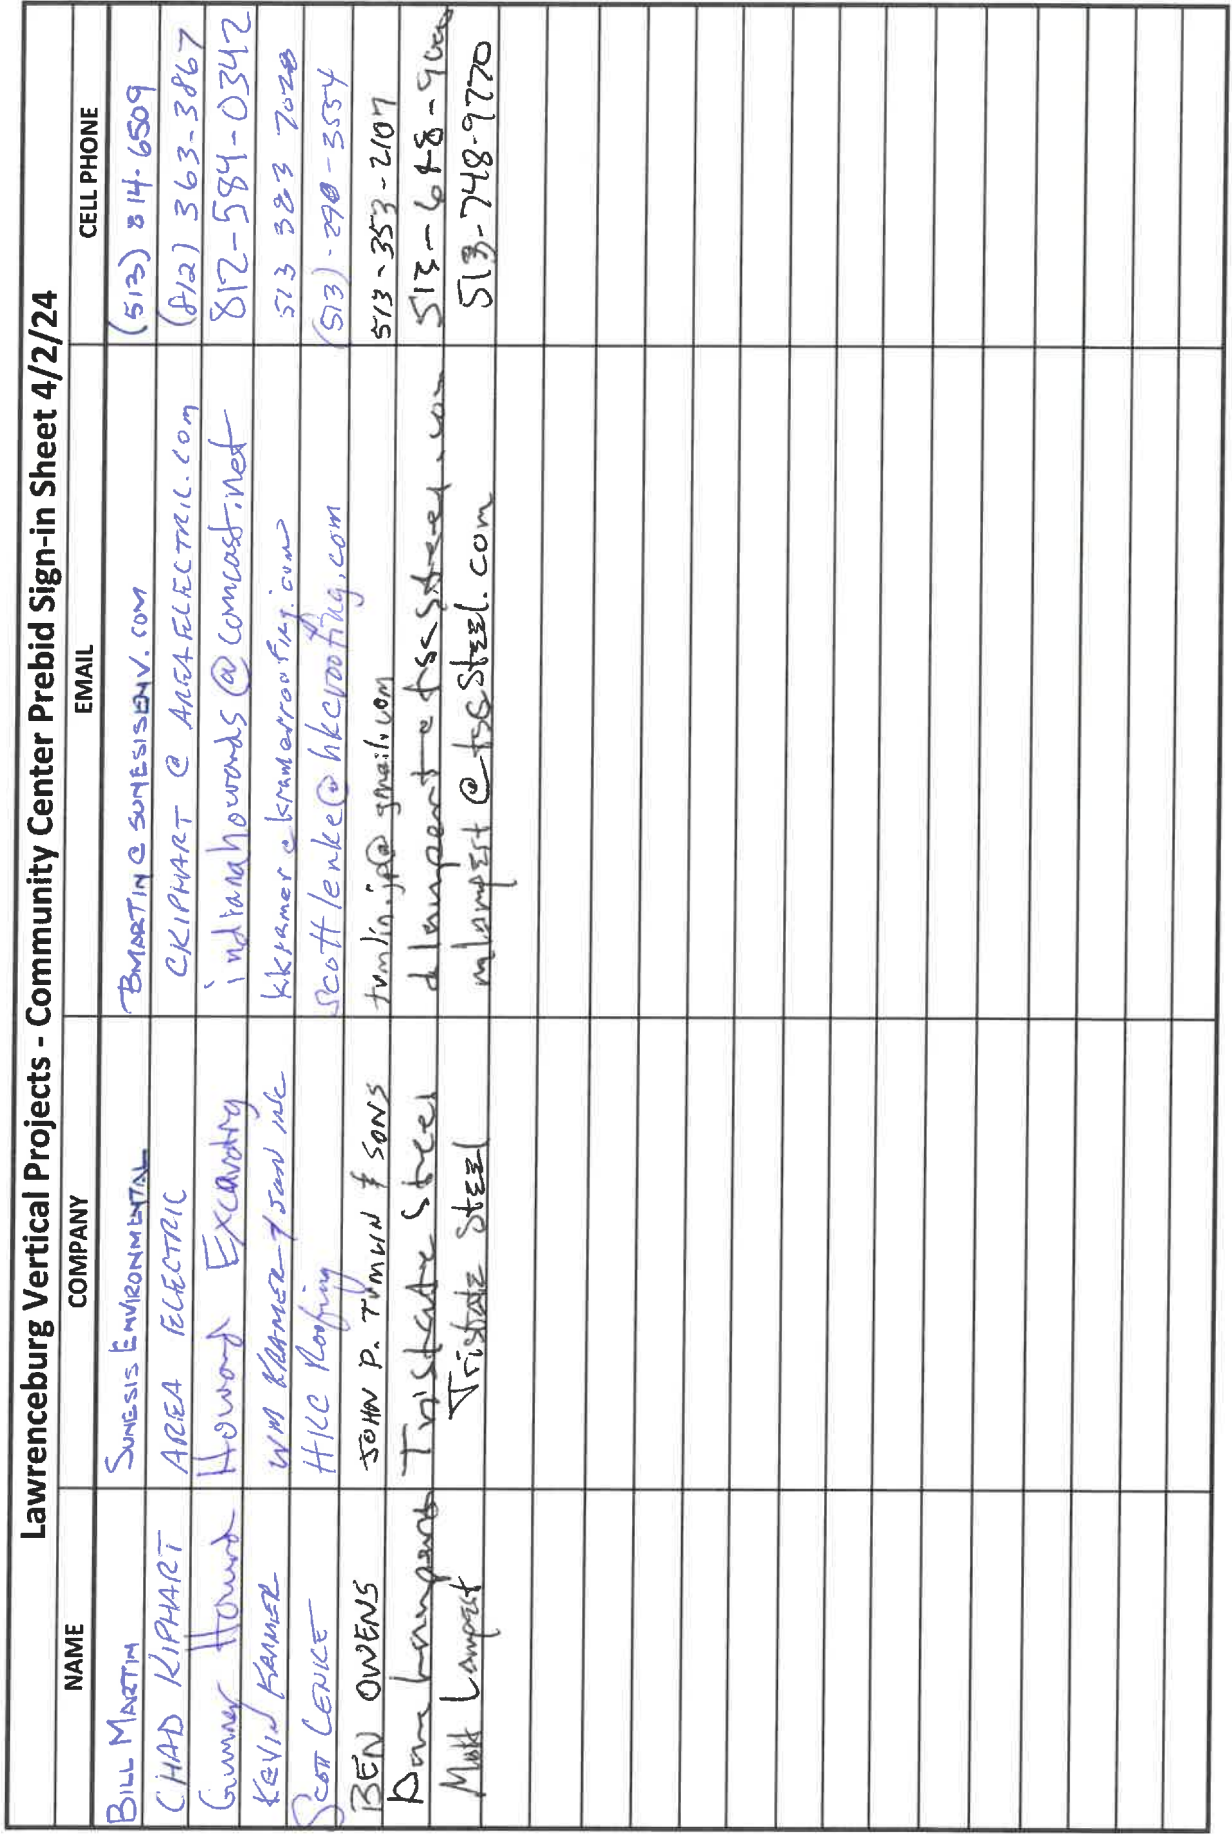 Lawrenceburg Vertical Projects - Community Center Prebid Sign-in Sheet 4/2/24
NAME COMPANY EMAIL CELL PHONE
BILL MARTIN SUNESIS ENVIRONMENTAL BMARTIN@SUNESISENV.COM (513) 814-6509
CHAD KIPHART AREA ELECTRIC CKIPHART @ AREAELECTRIC.COM (812) 363-3867
Gunner Howard Howard Excavating indianahowards@comcast.net 812-584-0342
KEVIN KRAMER WM KRAMER & SON INC kkramer@kramerroofing.com 513 383 7020
SCOTT LENKE HKC Roofing Scottlenke@hkcroofing.com (513)-290-3554
BEN OWENS JOHN P. TUMLIN & SONS tumlin.jp@gmail.com 513-353-2107
Lampert Tristate Steel dlampert@tscsteel.com 513-648-9000
Matt Lampert Tristate Steel mlampert@tscsteel.com 513-748-9770